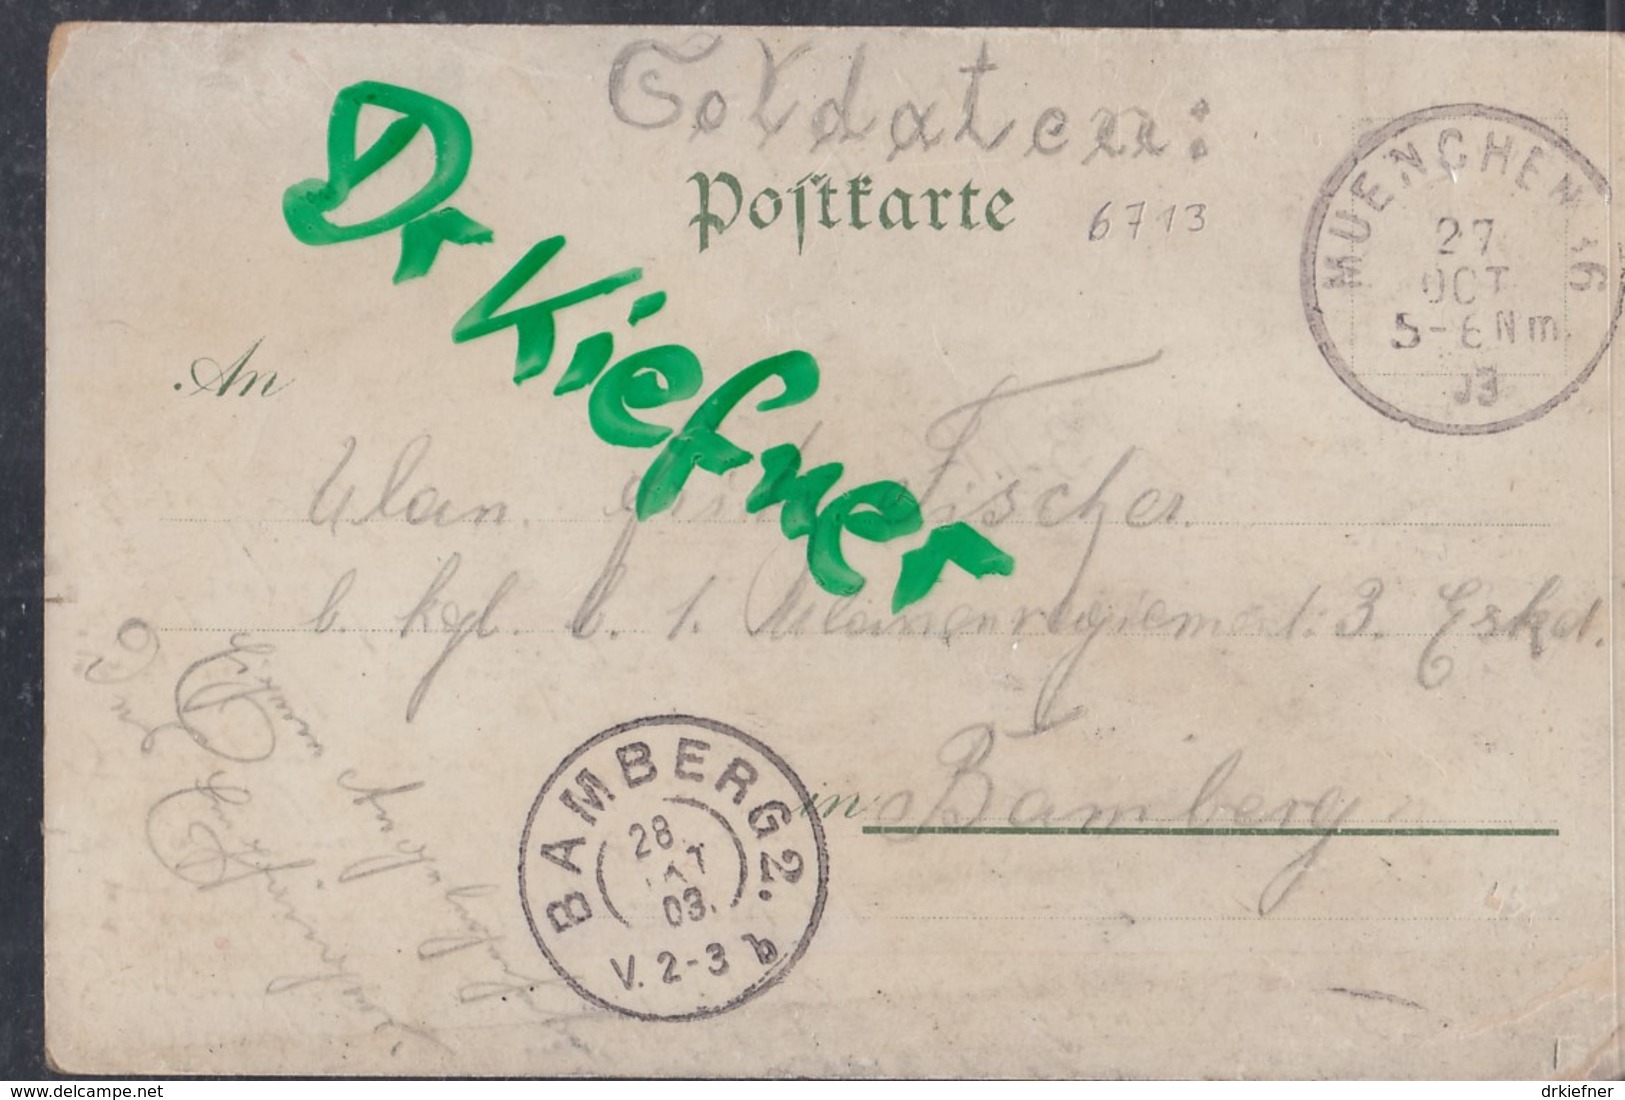 Soldaten:
Postkarte
6713
MUENCHEN 16
27
OCT
5-6 Nm.
03
Dr Kiefner
An
Ulan. Fischer.
b. kgl. b. 1. Ulanenregiment. 3. Eskd.
in Bamberg
BAMBERG 2.
28
OKT
03.
V. 2-3 b
Eigene Angelegenheit
des Empfängers
drkiefner